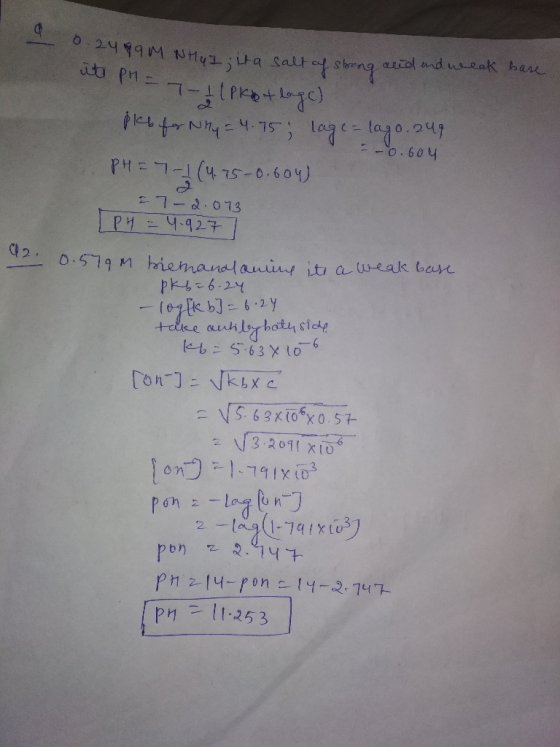 Q 0.2499M NH4I; it a salt of strong acid and weak base
its PH = 7 - 1/2 (PKb + logC)
pkb for NH4 = 4.75; log c = log 0.249
= -0.604
PH = 7 - 1/2 (4.75 - 0.604)
= 7 - 2.073
PH = 4.927
Q2. 0.579 M triethanolamine its a weak base
pkb = 6.24
-log[kb] = 6.24
take antilog both side
kb = 5.63 × 10^-6
[OH^-] = √kb × c
= √5.63 × 10^-6 × 0.57
= √3.2091 × 10^-6
[OH^-] = 1.791 × 10^-3
POH = -log[OH^-]
= -log(1.791 × 10^-3)
POH = 2.747
PH = 14 - POH = 14 - 2.747
PH = 11.253